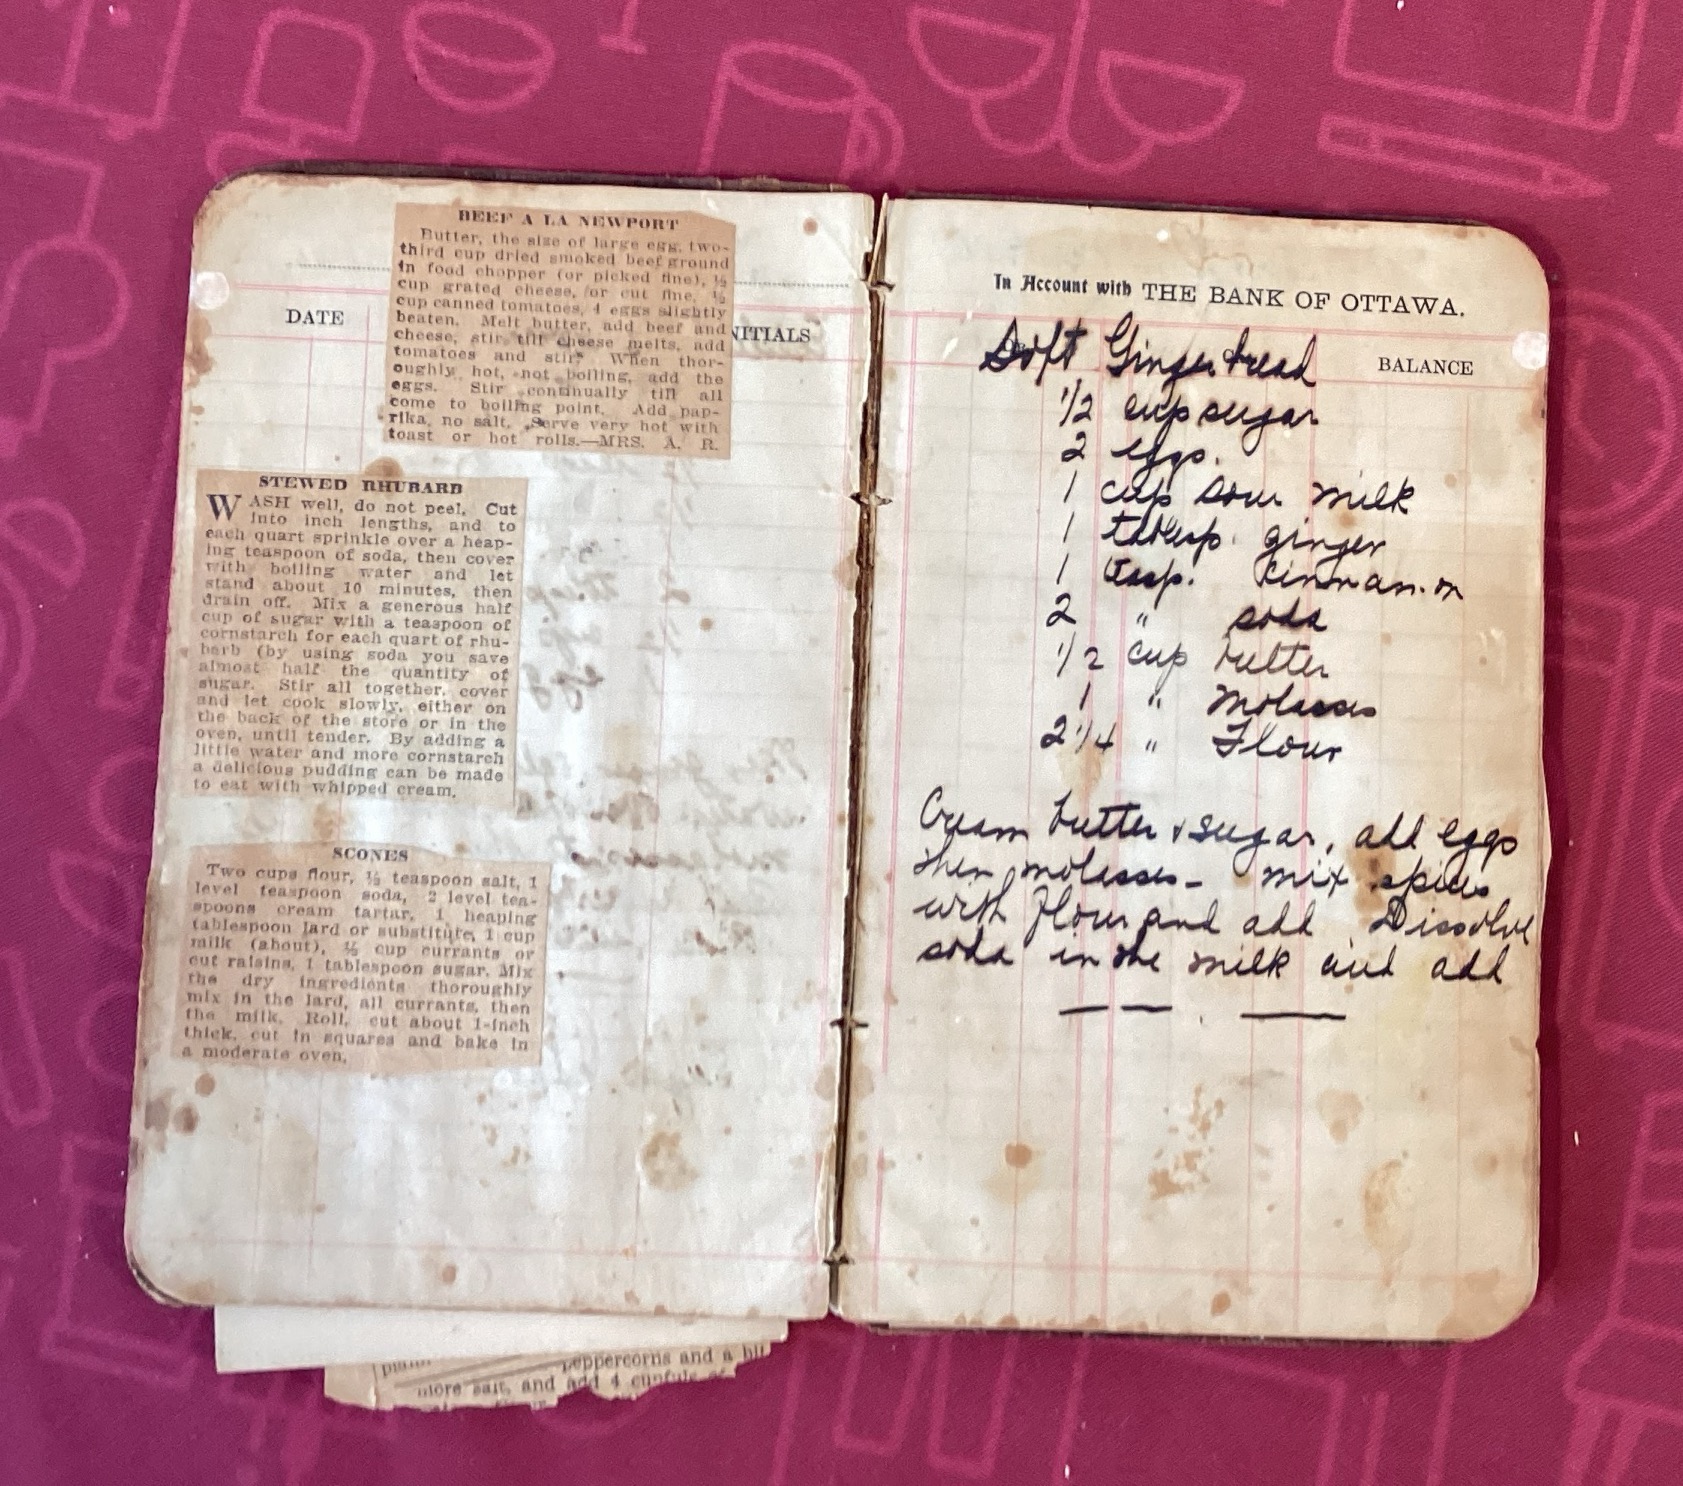 BEEF A LA NEWPORT
Butter, the size of large egg, two-
third cup dried smoked beef ground
in food chopper (or picked fine), ½
cup grated cheese, or cut fine, ½
cup canned tomatoes, 4 eggs slightly
beaten. Melt butter, add beef and
cheese, stir till cheese melts, add
tomatoes and stir. When thor-
oughly hot, not boiling, add the
eggs. Stir continually till all
come to boiling point. Add pap-
rika, no salt. Serve very hot with
toast or hot rolls.—MRS. A. R.
DATE
NITIALS
STEWED RHUBARB
WASH well, do not peel. Cut
into inch lengths, and to
each quart sprinkle over a heap-
ing teaspoon of soda, then cover
with boiling water and let
stand about 10 minutes, then
drain off. Mix a generous half
cup of sugar with a teaspoon of
cornstarch for each quart of rhu-
barb (by using soda you save
almost half the quantity of
sugar. Stir all together, cover
and let cook slowly, either on
the back of the store or in the
oven, until tender. By adding a
little water and more cornstarch
a delicious pudding can be made
to eat with whipped cream.
SCONES
Two cups flour, ½ teaspoon salt, 1
level teaspoon soda, 2 level tea-
spoons cream tartar, 1 heaping
tablespoon lard or substitute, 1 cup
milk (about), cup currants or
cut raisins, 1 tablespoon sugar. Mix
the dry ingredients thoroughly
mix in the lard, all currants, then
the milk. Roll, cut about 1-inch
thick, cut in squares and bake in
a moderate oven.
peppercorns and a bit
more salt, and add 4 cupfuls of
In Account with THE BANK OF OTTAWA.
BALANCE
Soft Gingerbread
1/2 cup sugar
2 eggs.
1 cup sour milk
1 tablesp. ginger
1 teasp. cinnamon
2 " soda
1/2 cup butter
1 " molasses
2 1/4 " Flour
Cream butter & sugar, add eggs
then molasses - mix spices
with flour and add. Dissolve
soda in the milk and add